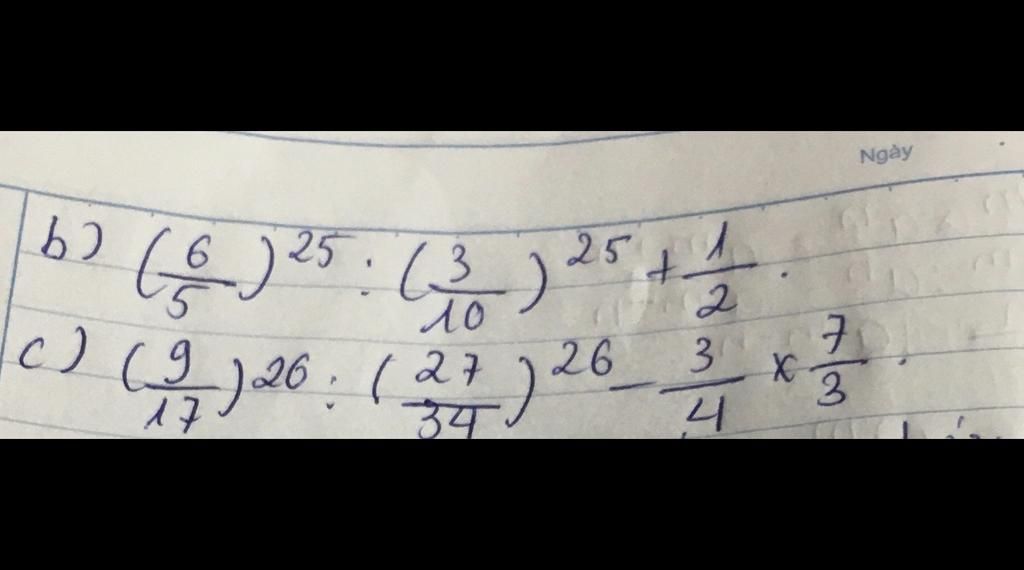 Ngày
b) (6/5)^25 : (3/10)^25 + 1/2 .
c) (9/17)^26 : (27/34)^26 - 3/4 x 7/3 .